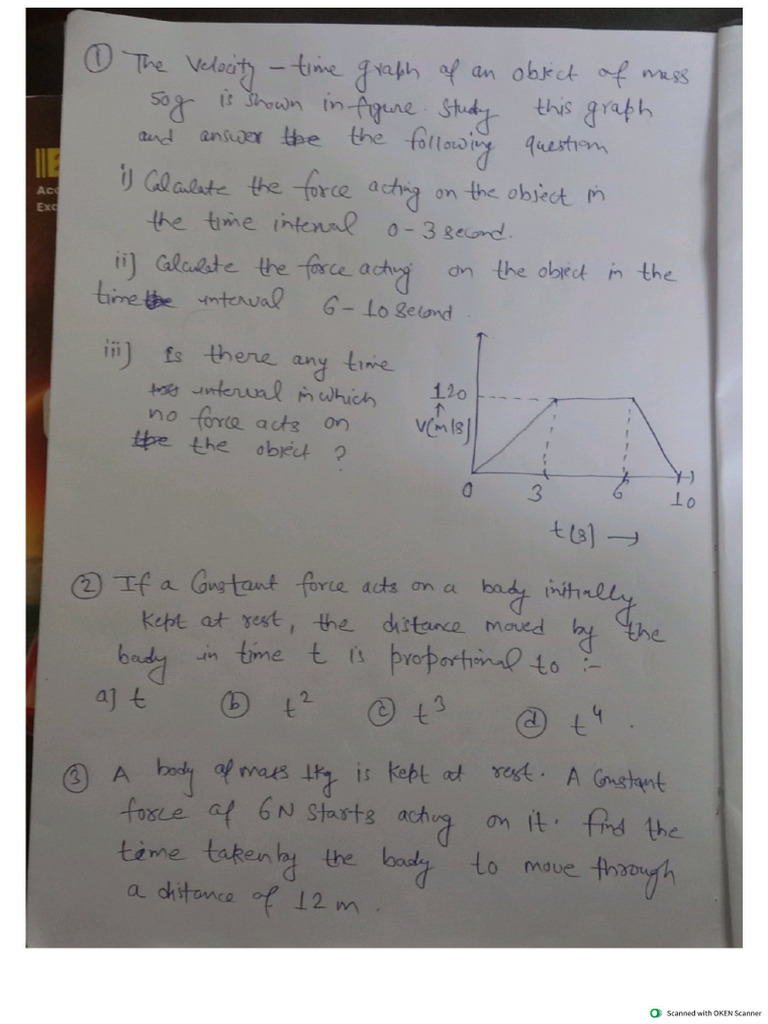 ① The velocity - time graph of an object of mass
50g is shown in figure. Study this graph
and answer the the following question
i) Calculate the force acting on the object in
the time interval 0-3 second.
ii] Calculate the force acting on the object in the
time interval 6-10 second.
iii] Is there any time
interval in which
no force acts on
the object ?
120
↑
V(m/s)
0 3 6 10
t(s) →
② If a Constant force acts on a body initially
kept at rest, the distance moved by the
body in time t is proportional to :-
a] t ⓑ t² ⓒ t³ ⓓ t⁴.
③ A body of mass 1kg is kept at rest. A Constant
force of 6N starts acting on it. find the
time taken by the body to move through
a distance of 12 m.
Acc
Exc
Scanned with OKEN Scanner